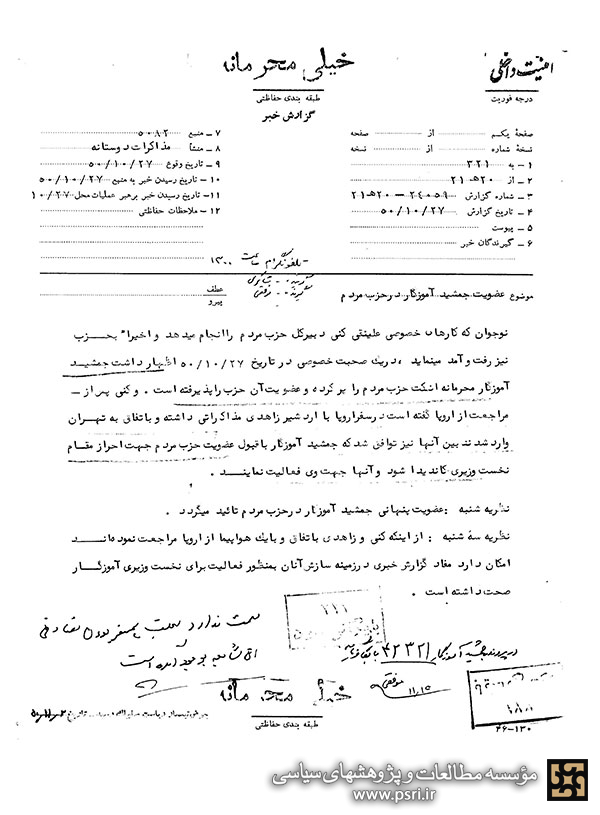 امنیت داخلی
خیلی محرمانه
درجه فوریت
طبقه بندی حفاظتی
گزارش خبر
صفحهٔ یکم از صفحه
نسخهٔ شماره از نسخه
۱ ـ به ۳۲۱
۲ ـ از ۲۰هـ ۲۱
۳ ـ شماره گزارش ۲۴۰۵۹ ـ ۲۰هـ۲۱
۴ ـ تاریخ گزارش ۵۰/۱۰/۲۷
۵ ـ پیوست
۶ ـ گیرندگان خبر
۷ ـ منبع ۵۰۸۲
۸ ـ منشأ مذاکرات دوستانه
۹ ـ تاریخ وقوع ۵۰/۱۰/۲۷
۱۰ ـ تاریخ رسیدن خبر به منبع ۵۰/۱۰/۲۷
۱۱ ـ تاریخ رسیدن خبر برهبر عملیات محل ۱۰/۲۷
۱۲ ـ ملاحظات حفاظتی
تلفونگرام ساعت ۱۳۰۰
موضوع عضویت جمشید آموزگار در حزب مردم
عطف
پیرو
نوجوان که کارهای خصوصی علینقی کنی دبیرکل حزب مردم را انجام میدهد و اخیراً بحزب
نیز رفت و آمد مینماید ، در یک صحبت خصوصی در تاریخ ۵۰/۱۰/۲۷ اظهار داشت جمشید
آموزگار محرمانه آنکت حزب مردم را پر کرده و عضویت آن حزب را پذیرفته است . و کنی پس از ـ
مراجعت از اروپا گفته است در سفر اروپا با اردشیر زاهدی مذاکراتی داشته و باتفاق به تهران
وارد شدند بین آنها نیز توافق شد که جمشید آموزگار با قبول عضویت حزب مردم جهت احراز مقام
نخست وزیری کاندیدا شود و آنها جهت وی فعالیت نماینــد .
نظریه شنبه : عضویت پنهانی جمشید آموزگار در حزب مردم تائید میگردد .
نظریه سه شنبه : از اینکه کنی و زاهدی باتفاق و با یک هواپیما از اروپا مراجعت نموده‌انــد
امکان دارد مفاد گزارش خبری در زمینه سازش آنان بمنظور فعالیت برای نخست وزیری آموزگــار
صحت داشته است .
صحت ندارد
است
در پرونده جمشید آموزگار ۴۲۳۲۱ بایگانی
۱۱/۱۵
خیلی محرمانه
طبقه بندی حفاظتی
۴۶-۱۳۰
مؤسسه مطالعات و پژوهشهای سیاسی
www.psri.ir